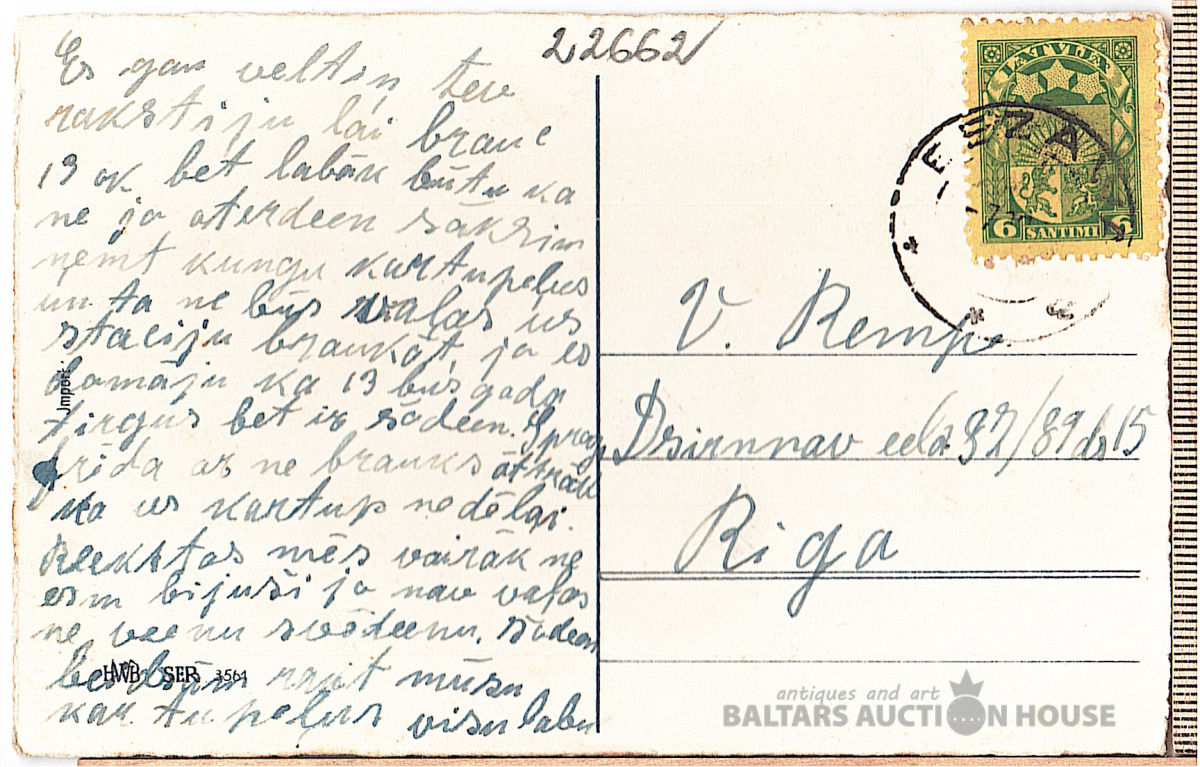 22662
Es gan veltin tev
rakstiju lái brauc
13 ok bet labāk būtu ka
ne jo oterdeen sāksim
ņemt kungu kartupeļus
un ta ne būs vaļas us
staciju braukāt, ja es
domāju ka 13 būs gada
tirgus bet ir sōdeen.
frida ar ne brauks ātrāk
ka us kartup nedēlai.
Reekstos mēs vairāk ne
esm bijuši jo nav vaļas
ne veenu svōdeenu. sōdeen
būsim rajt mūsu
kartupeļus visu labu
Jmport
HWB SER 3564
LATVIJA
6 SANTIMI 6
V. Remp
Dsirnnav eela 87/89 ds 15
Riga
antiques and art
BALTARS AUCTION HOUSE